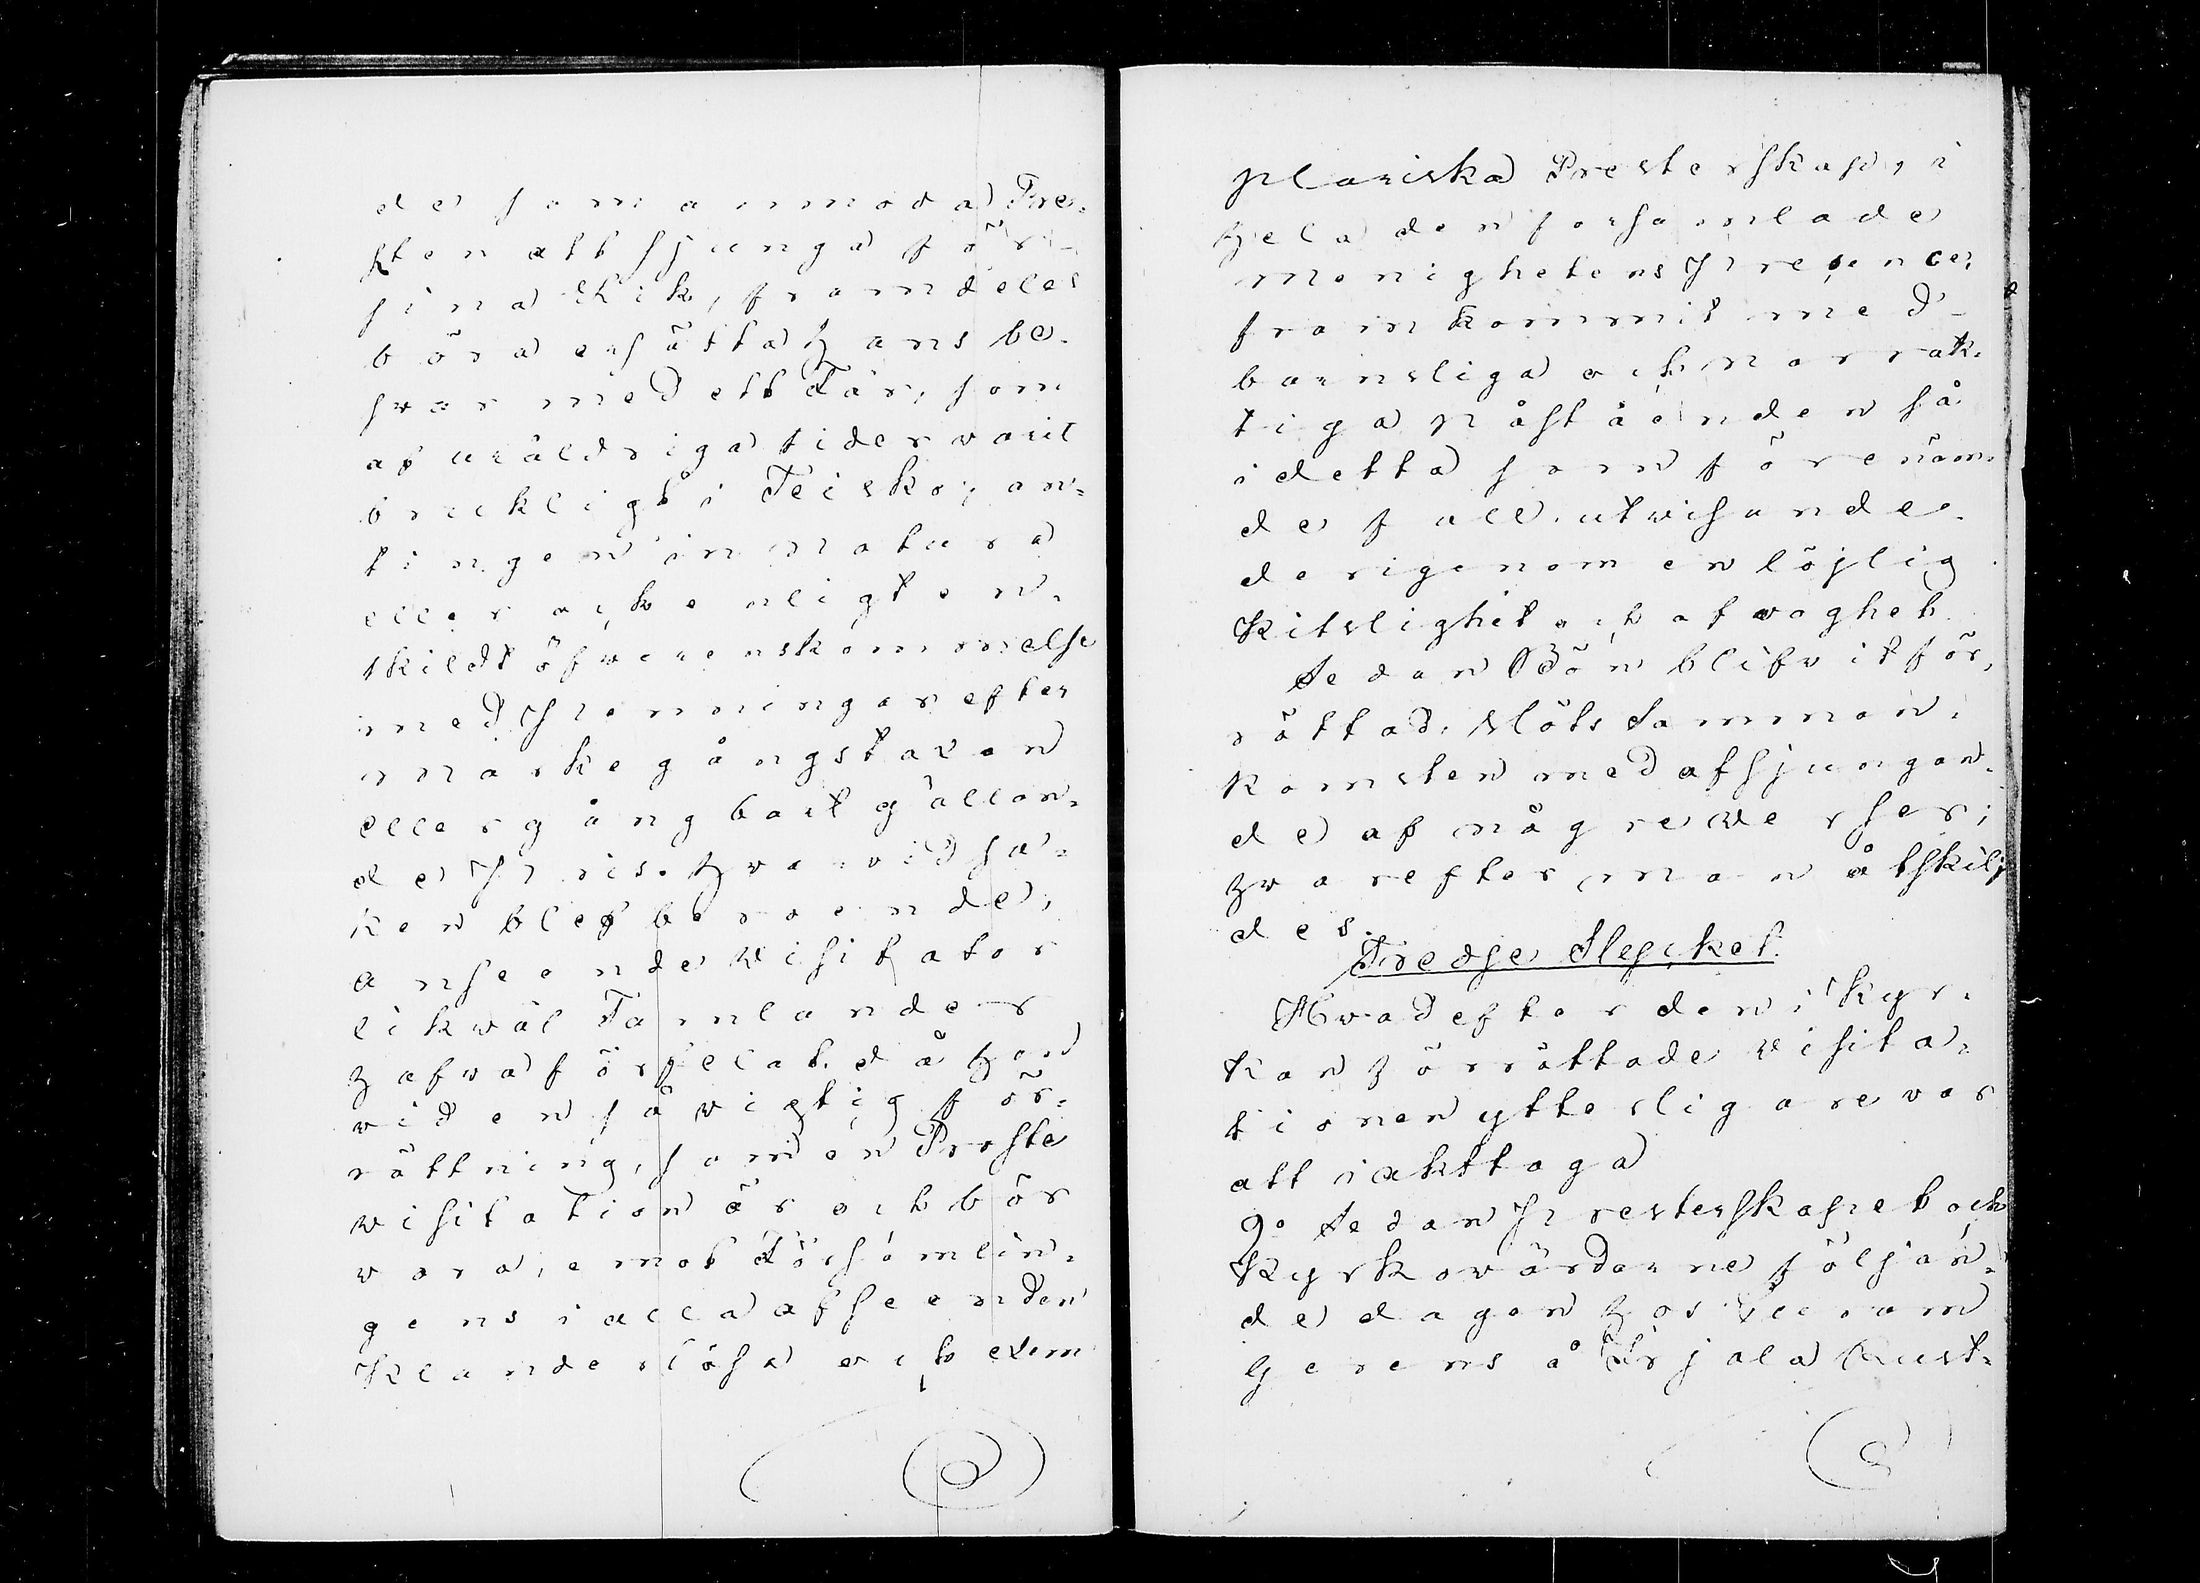 de som anmoda Pre-
sten att sjunga för
sina Lik, framdeles
böra ersätta hans be-
svär med ett Får, som
af uråldriga tider varit
brukligt i Teisko, an-
tingen in natura
eller ock enligt en-
skildt öfverenskommelse
med penningar efter
markegångstaxan
eller gångbart gällan-
de pris. Hvarvid sa-
ken blef beroende,
anseende Visitator
likväl Tamlander
hafva förfelat, då han
vid en så vigtig för-
rättning, som en Proste
visitation är och bör
vara, emot Församlin-
gens i alla afseenden
klanderlösa och exem
plariska Presterskap, i
hela den församlade
menighetens presence,
framkommit med
barnsliga och narrak-
tiga påståenden så
i detta som förenäm-
de fall, utvisande
derigenom en löjlig
Kitslighet och afvoghet.
Sedan Bön blifvit för-
rättad, slöts samman-
komsten med afsjungan-
de af några verser;
hvarefter man åtskilj
des.
Tredje Stycket.
Hvad efter den i Kyr-
kan förrättade visita-
tionen ytterligare var
att iakttaga
9o Sedan presterskapet och
Kyrkovärdarne följan-
de dagen hos
Gerens å Terjala Rust-